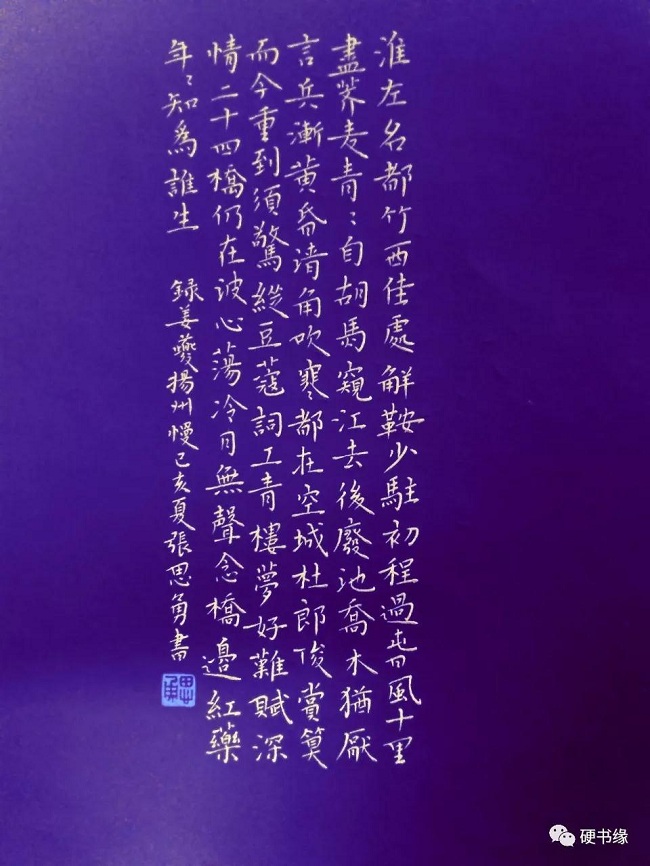 淮左名都竹西佳處解鞍少駐初程過春風十里
盡荠麦青〻自胡馬窺江去後廢池喬木猶厭
言兵漸黄昏清角吹寒都在空城杜郎俊賞算
而今重到須驚縱豆蔻詞工青樓夢好難賦深
情二十四橋仍在波心蕩冷月無聲念橋邊紅藥
年〻知爲誰生 録姜夔揚州慢己亥夏張思勇書
思勇
硬书缘